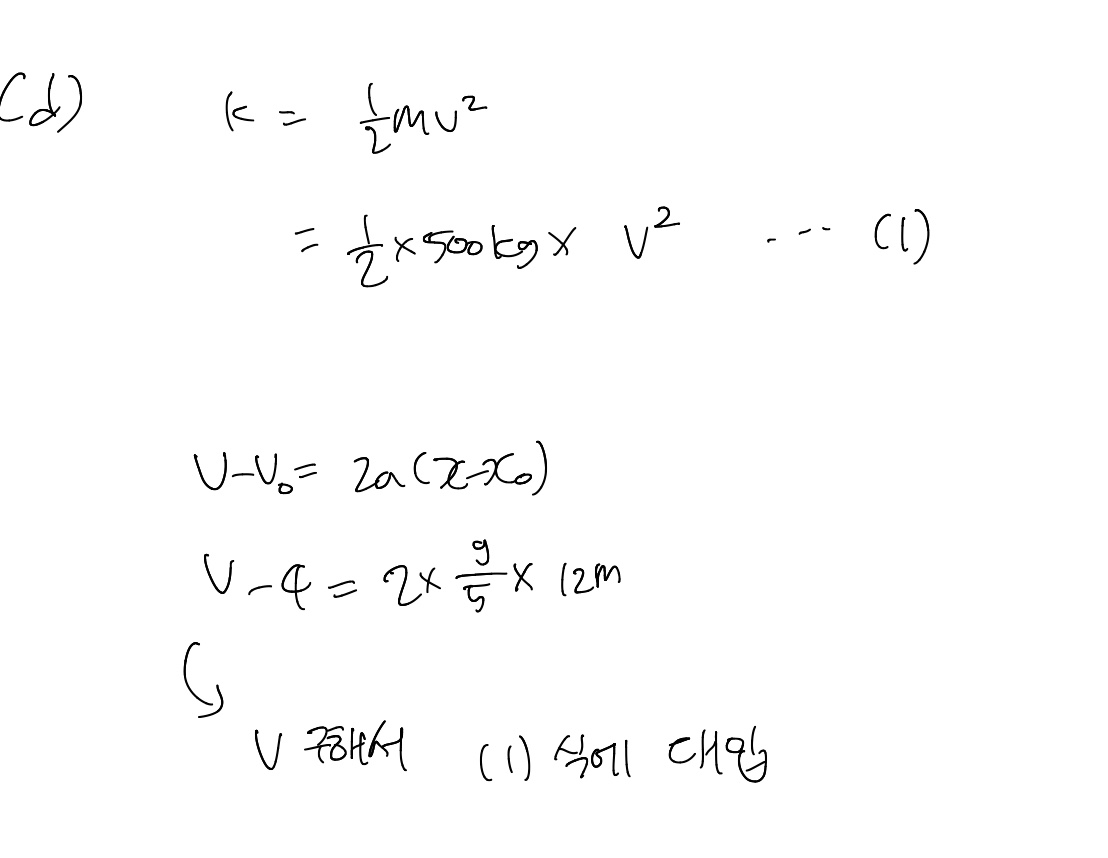 (d) K = 1/2 mv²
= 1/2 × 500kg × V² ... (1)
V-V₀ = 2a(x-x₀)
V-4 = 2 × g/5 × 12m
V 구해서 (1) 식에 대입